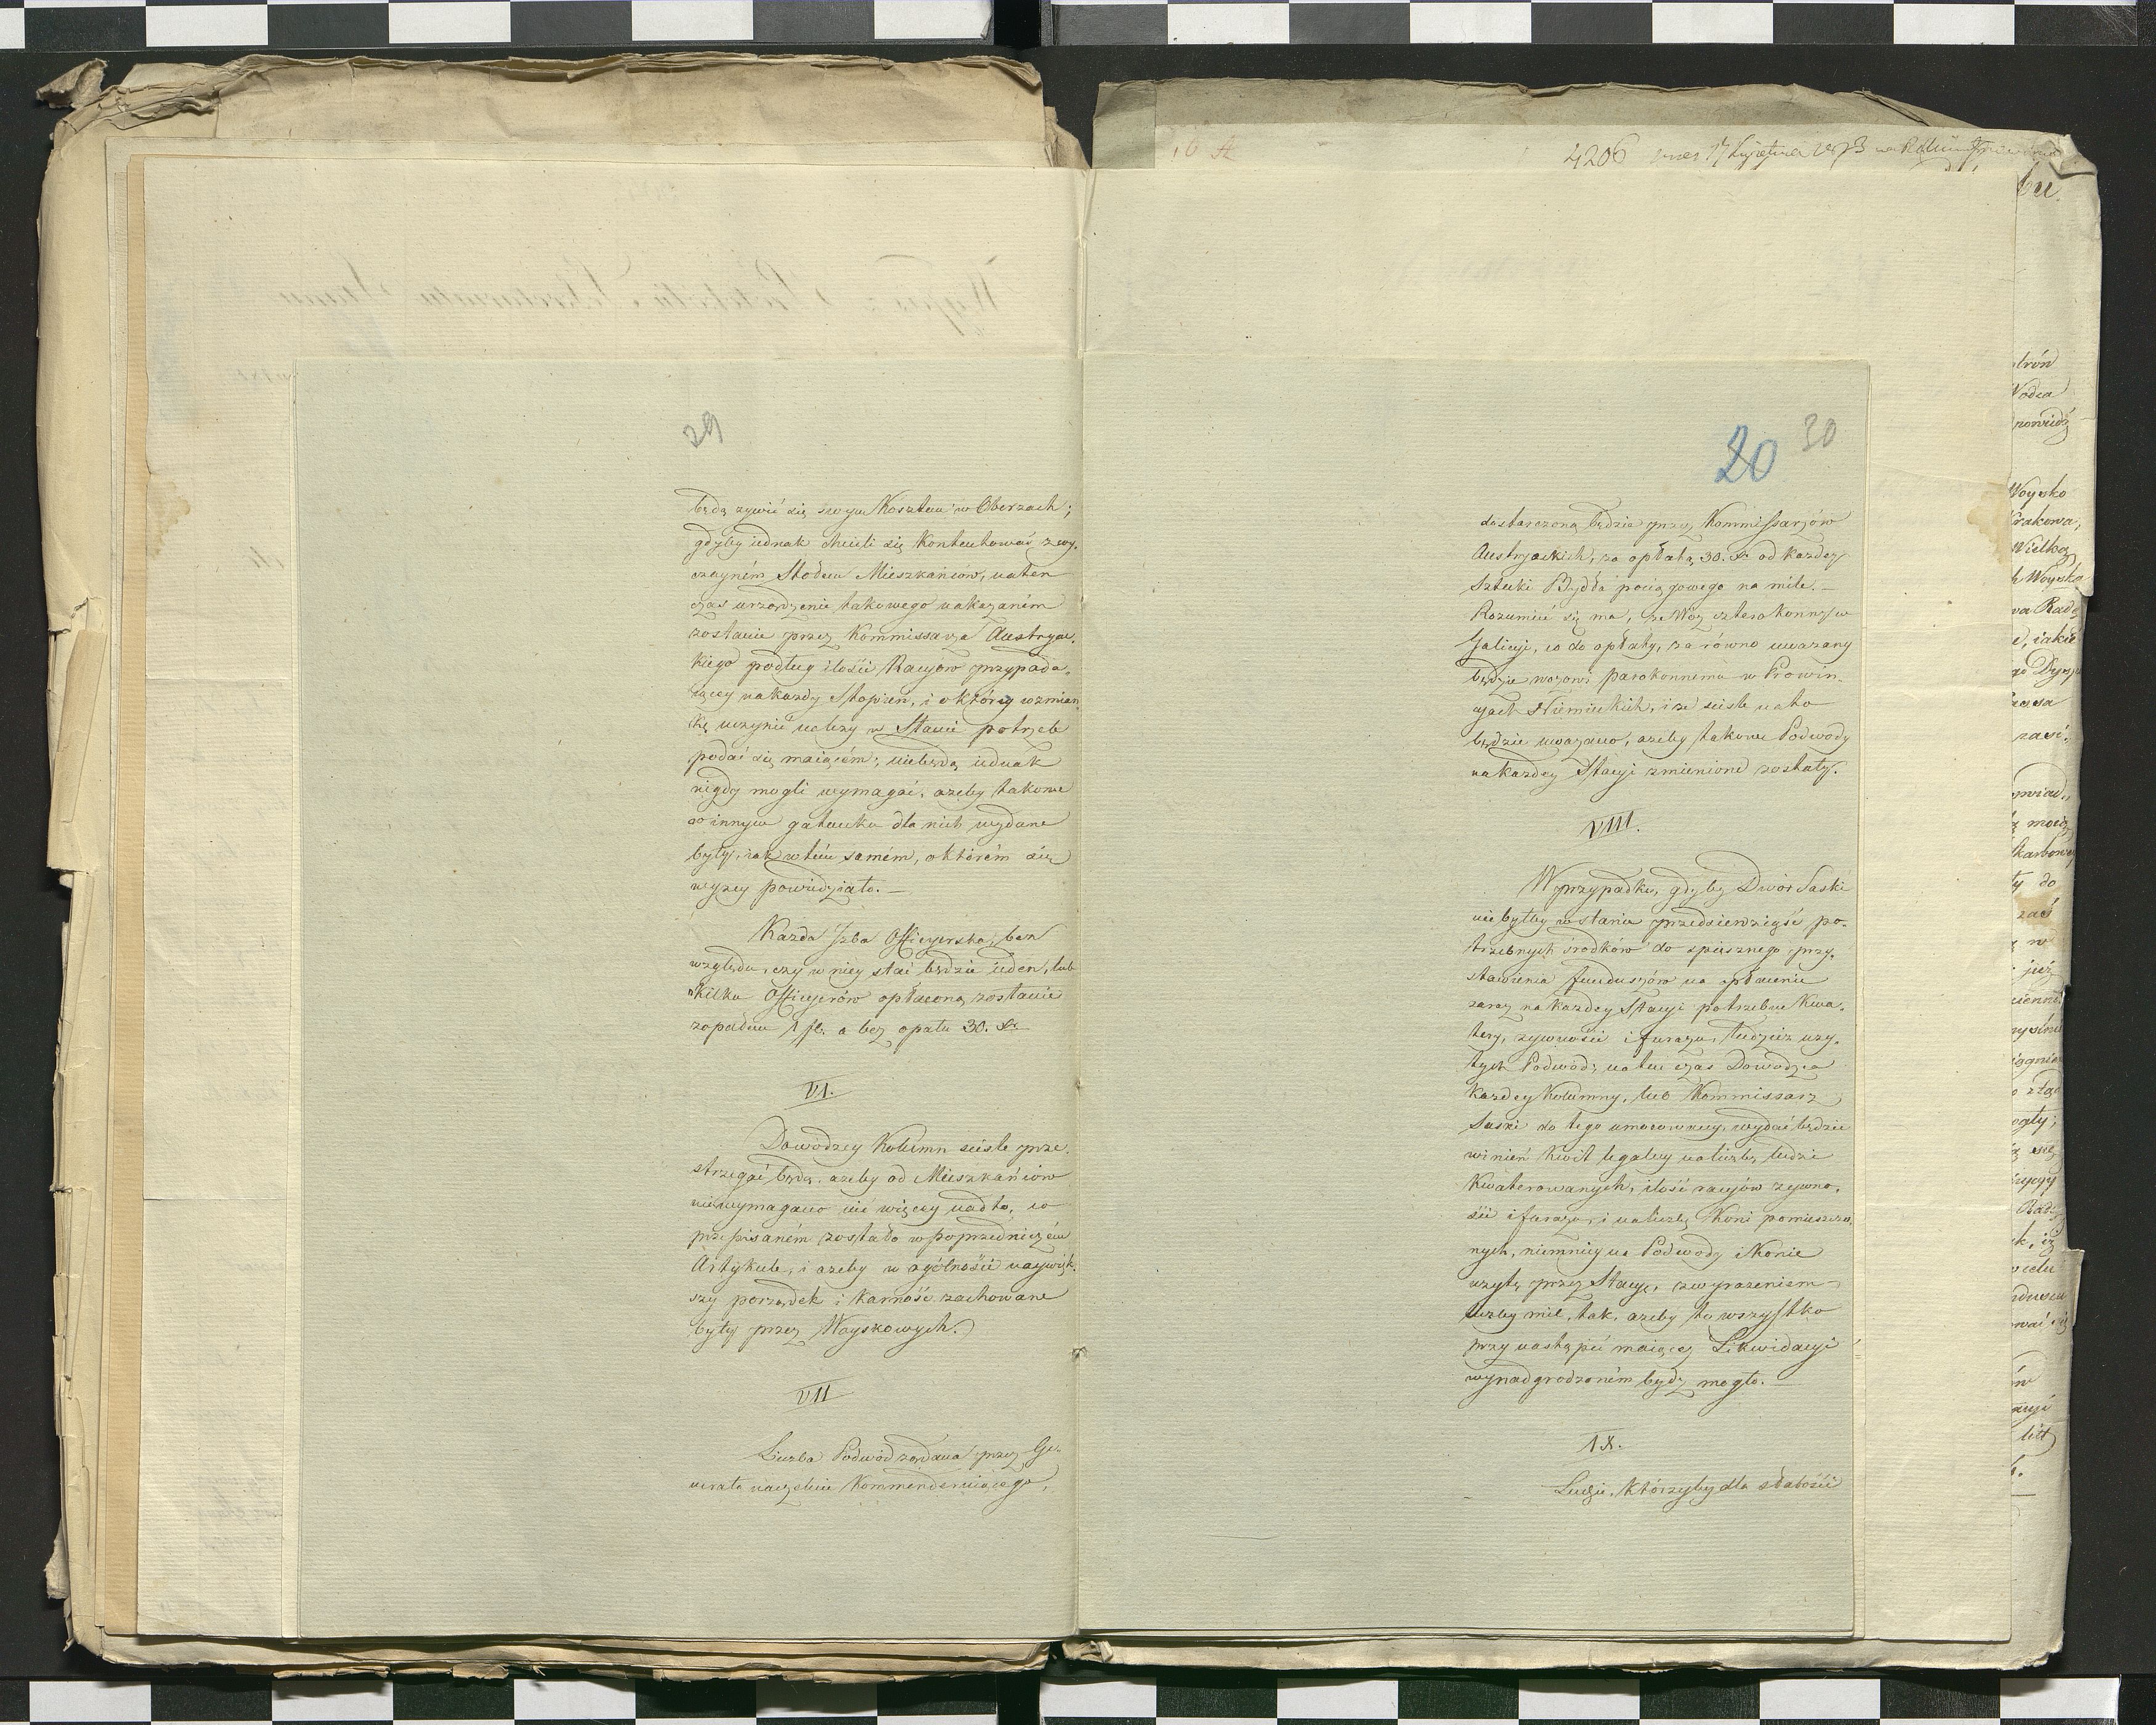 29
będą zywić się swym Kosztem w Oberzach;
gdyby iednak chcieli się Kontentować zwy,,
czayném Stołem Mieszkańców, naten
czas urządzenie takowego nakazaném
zostanie przez Kommissarza Austryac,,
kiego podług ilości Racyów przypada,,
iącey na kazdy Stopień, i o którey wzmian
kę uczynić nalezy w Stanie potrzeb
podać się maiącém; niebędą iednak
nigdy mogli wymagać, azeby takowe
w innym gatunku dla nich wydane
były, iak w tém samém, o którém się
wyzey powiedziało. —
Kazda Izba Officyerska, bez
względu, czy w niey stać będzie ieden, lub
kilku Officyerów opłaconą zostanie
z opałem 1 fl. a bez opału 30. Xr
VI.
Dowodzcy Kolumn ściśle prze,,
strzegać będą, azeby od Mieszkańców
niewymagano nic więcey nadto, co
przepisaném zostało w poprzedniczém
Artykule, i azeby w ogólności naywięk,,
szy porządek i karność zachowane
były przez Woyskowych.
VII
Liczba Podwód ządana przez Ge,,
nerała naczelnie Kommenderuiącego,
4206
20 30
dostarczoną będzie przez Kommissarzów
Austryackich, za opłatą 30. Xr od kazdey
Sztuki Bydła pociągowego na milę. —
Rozumieć się ma, ze Wóz czterokonny w
Galicyi, co do opłaty, za równo uwazany
będzie wozowi parokonnemu w Prowin,,
cyach Niemieckich, i ze ściśle na to
będzie uwazano, azeby takowe Podwody
na kazdey Stacyi zmienione zostały.
VIII.
W przypadku, gdyby Dwór Saski
nie byłby w stanie przedsiewziąść po,,
trzebnych środków do spiesznego przy,,
stawienia funduszów na opłacenie
zaraz na kazdey Stacyi potrzebne Kwa,,
tery, zywności i furazu, tudziez uzy,,
tych Podwód; na ten czas Dowodzca
kazdey Kolumny, lub Kommissarz
Saski do tego umocowany, wydać będzie
winien Kwit legalny na liczbę ludzi
Kwaterowanych, ilość racyów zywno,,
ści i furazu, i na liczbę Koni pomieszczo,,
nych, niemniey na Podwody i Konie
uzyte przez Stacyę, z wyrazeniem
liczby mil, tak, azeby to wszystko
przy nastąpić maiącey Likwidacyi
wynadgrodzoném bydz mogło. —
IX.
Ludzie, którzyby dla słabości